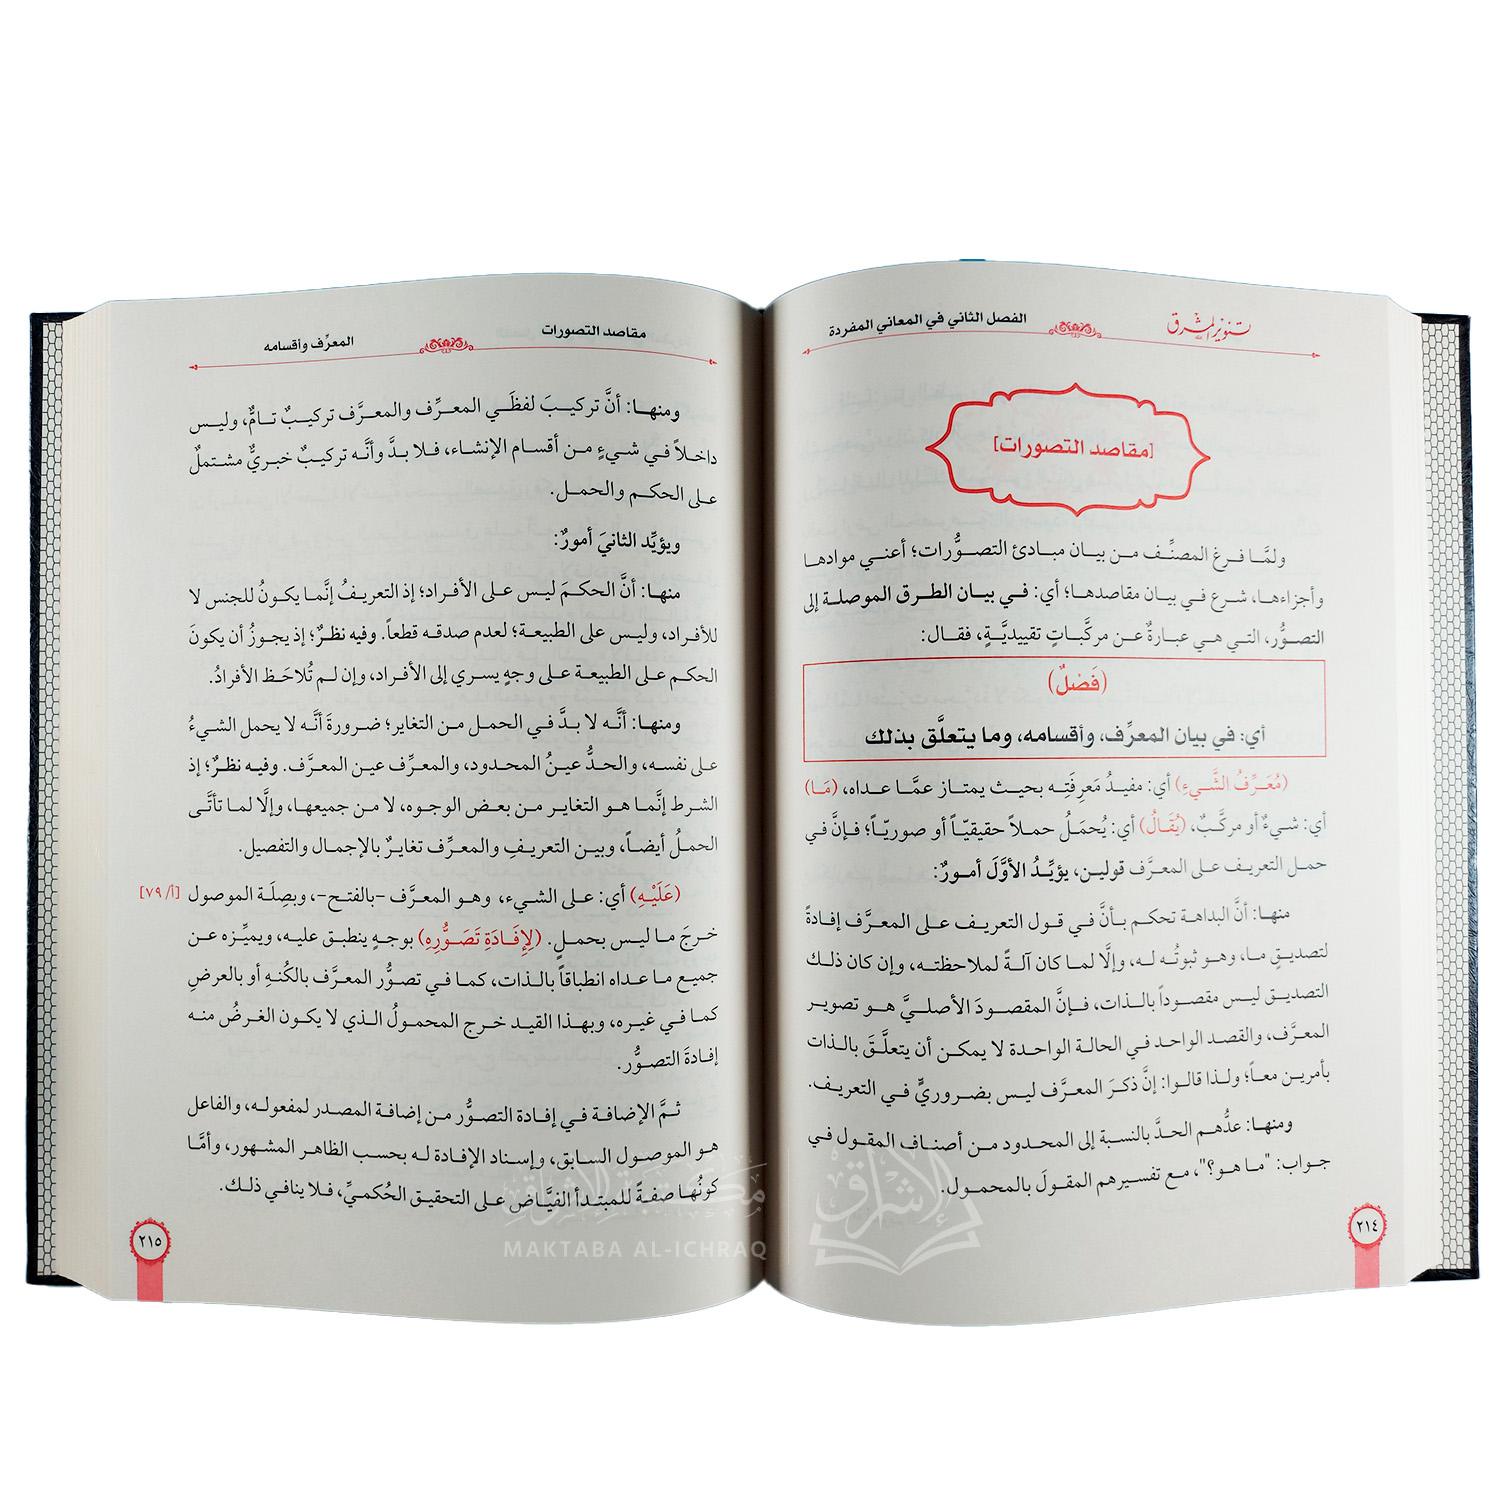 تنوير المشرق
الفصل الثاني في المعاني المفردة
[مقاصد التصورات]
ولمَّا فرغ المصنِّف من بيان مبادئ التصوُّرات؛ أعني موادها
وأجزاءها، شرع في بيان مقاصدها؛ أي: في بيان الطرق الموصلة إلى
التصوُّر، التي هي عبارةٌ عن مركَّباتٍ تقييديَّةٍ، فقال:
(فَصْلٌ)
أي: في بيان المعرِّف، وأقسامه، وما يتعلَّق بذلك
(مُعَرِّفُ الشَّيءِ) أي: مفيدُ مَعرِفَتِه بحيث يمتاز عمَّا عداه، (مَا)
أي: شيءٌ أو مركَّبٌ، (يُقَالُ) أي: يُحمَلُ حملاً حقيقيّاً أو صوريّاً؛ فإنَّ في
حمل التعريف على المعرَّف قولين، يؤيِّدُ الأوَّلَ أمورٌ:
منها: أنَّ البداهة تحكم بأنَّ في قول التعريف على المعرَّف إفادةً
لتصديقٍ ما، وهو ثبوتُه له، وإلَّا لما كان آلةً لملاحظته، وإن كان ذلك
التصديق ليس مقصوداً بالذات، فإنَّ المقصودَ الأصليَّ هو تصوير
المعرَّف، والقصد الواحد في الحالة الواحدة لا يمكن أن يتعلَّقَ بالذات
بأمرين معاً؛ ولذا قالوا: إنَّ ذكرَ المعرَّف ليس بضروريٍّ في التعريف.
ومنها: عدُّهم الحدَّ بالنسبة إلى المحدود من أصناف المقول في
جواب: "ما هو؟"، مع تفسيرهم المقولَ بالمحمول.
٢١٤
مقاصد التصورات
المعرِّف وأقسامه
ومنها: أنَّ تركيبَ لفظَي المعرِّف والمعرَّف تركيبٌ تامٌّ، وليس
داخلاً في شيءٍ من أقسام الإنشاء، فلا بدَّ وأنَّه تركيبٌ خبريٌّ مشتملٌ
على الحكم والحمل.
ويؤيِّد الثانيَ أمورٌ:
منها: أنَّ الحكمَ ليس على الأفراد؛ إذ التعريفُ إنَّما يكونُ للجنس لا
للأفراد، وليس على الطبيعة؛ لعدم صدقه قطعاً. وفيه نظرٌ؛ إذ يجوزُ أن يكونَ
الحكم على الطبيعة على وجهٍ يسري إلى الأفراد، وإن لم تُلاحَظ الأفرادُ.
ومنها: أنَّه لا بدَّ في الحمل من التغاير؛ ضرورةَ أنَّه لا يحمل الشيءُ
على نفسه، والحدُّ عينُ المحدود، والمعرِّف عين المعرَّف. وفيه نظرٌ؛ إذ
الشرط إنَّما هو التغاير من بعض الوجوه، لا من جميعها، وإلَّا لما تأتَّى
الحملُ أيضاً، وبين التعريفِ والمعرِّف تغايرٌ بالإجمال والتفصيل.
(عَلَيْهِ) أي: على الشيء، وهو المعرَّف -بالفتح-، وبصِلَة الموصول [أ/٧٩]
خرجَ ما ليس بحملٍ. (لِإِفَادَةِ تَصَوُّرِهِ) بوجهٍ ينطبق عليه، ويميِّزه عن
جميع ما عداه انطباقاً بالذات، كما في تصوُّر المعرَّف بالكُنهِ أو بالعرضِ
كما في غيره، وبهذا القيد خرج المحمولُ الذي لا يكون الغرضُ منه
إفادةَ التصوُّر.
ثمَّ الإضافة في إفادة التصوُّر من إضافة المصدر لمفعوله، والفاعل
هو الموصول السابق، وإسناد الإفادة له بحسب الظاهر المشهور، وأمَّا
كونُها صفةً للمبتدأ الفيَّاض على التحقيق الحُكميِّ، فلا ينافي ذلك.
٢١٥
مكتبة الإشراق
MAKTABA AL-ICHRAQ
الإشراق